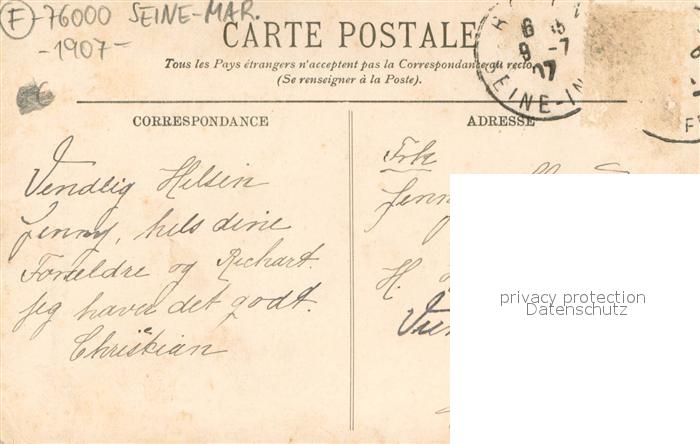 (F)-76000 SEINE-MAR.
-1907-
CARTE POSTALE
Tous les Pays étrangers n'acceptent pas la Correspondance au recto
(Se renseigner à la Poste).
6
9 -7
07
SEINE-IN
CORRESPONDANCE
Vendlig Hilsen
Jenny, hils dine
Forældre og Richart.
Jeg haver det godt.
Christian
ADRESSE
Frk
Jenny
H.
privacy protection
Datenschutz